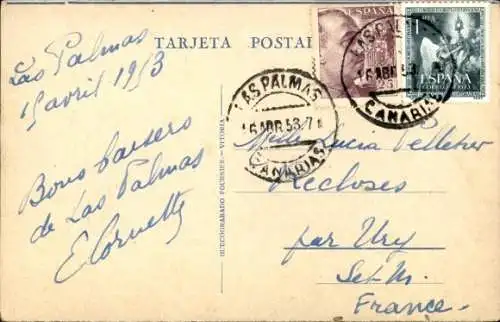 TARJETA POSTAL
Las Palmas
15 avril 1953
Bons baisers
de Las Palmas
E Cornette
HUECOGRABADO FOURNIER - VITORIA
ESPAÑA
ESPAÑA
LAS PALMAS
16 ABR 53
CANARIAS
LAS PALMAS
16 ABR 53. 7
(CANARIAS)
Mlle Lucia Pelletier
Recloses
par Ury
Set M.
France.